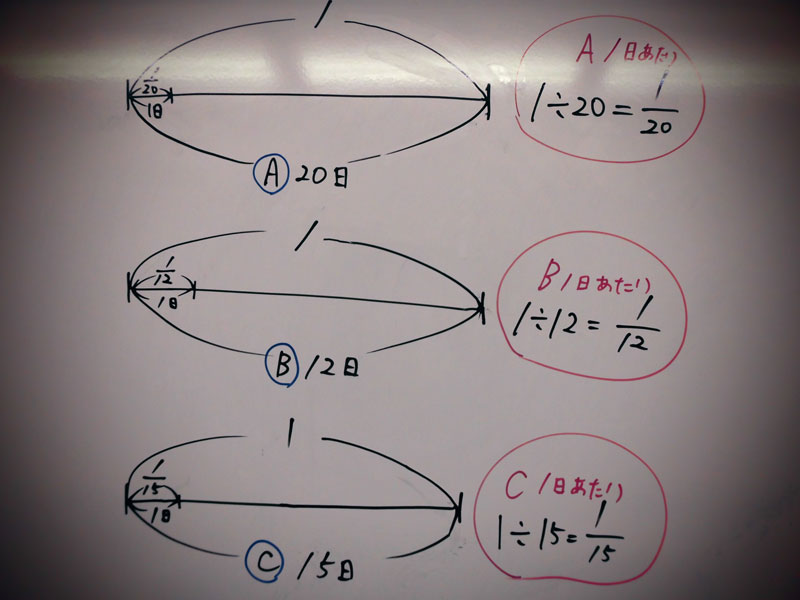 1
1/20
1日
A 20日
A 1日あたり
1÷20=1/20
1
1/12
1日
B 12日
B 1日あたり
1÷12=1/12
1
1/15
1日
C 15日
C 1日あたり
1÷15=1/15